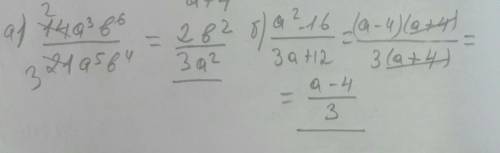 а) 14a³b⁶ / 21a⁵b⁴ = 2b² / 3a²
2
3
б) a² - 16 / 3a + 12 = (a - 4)(a + 4) / 3(a + 4) =
= a - 4 / 3